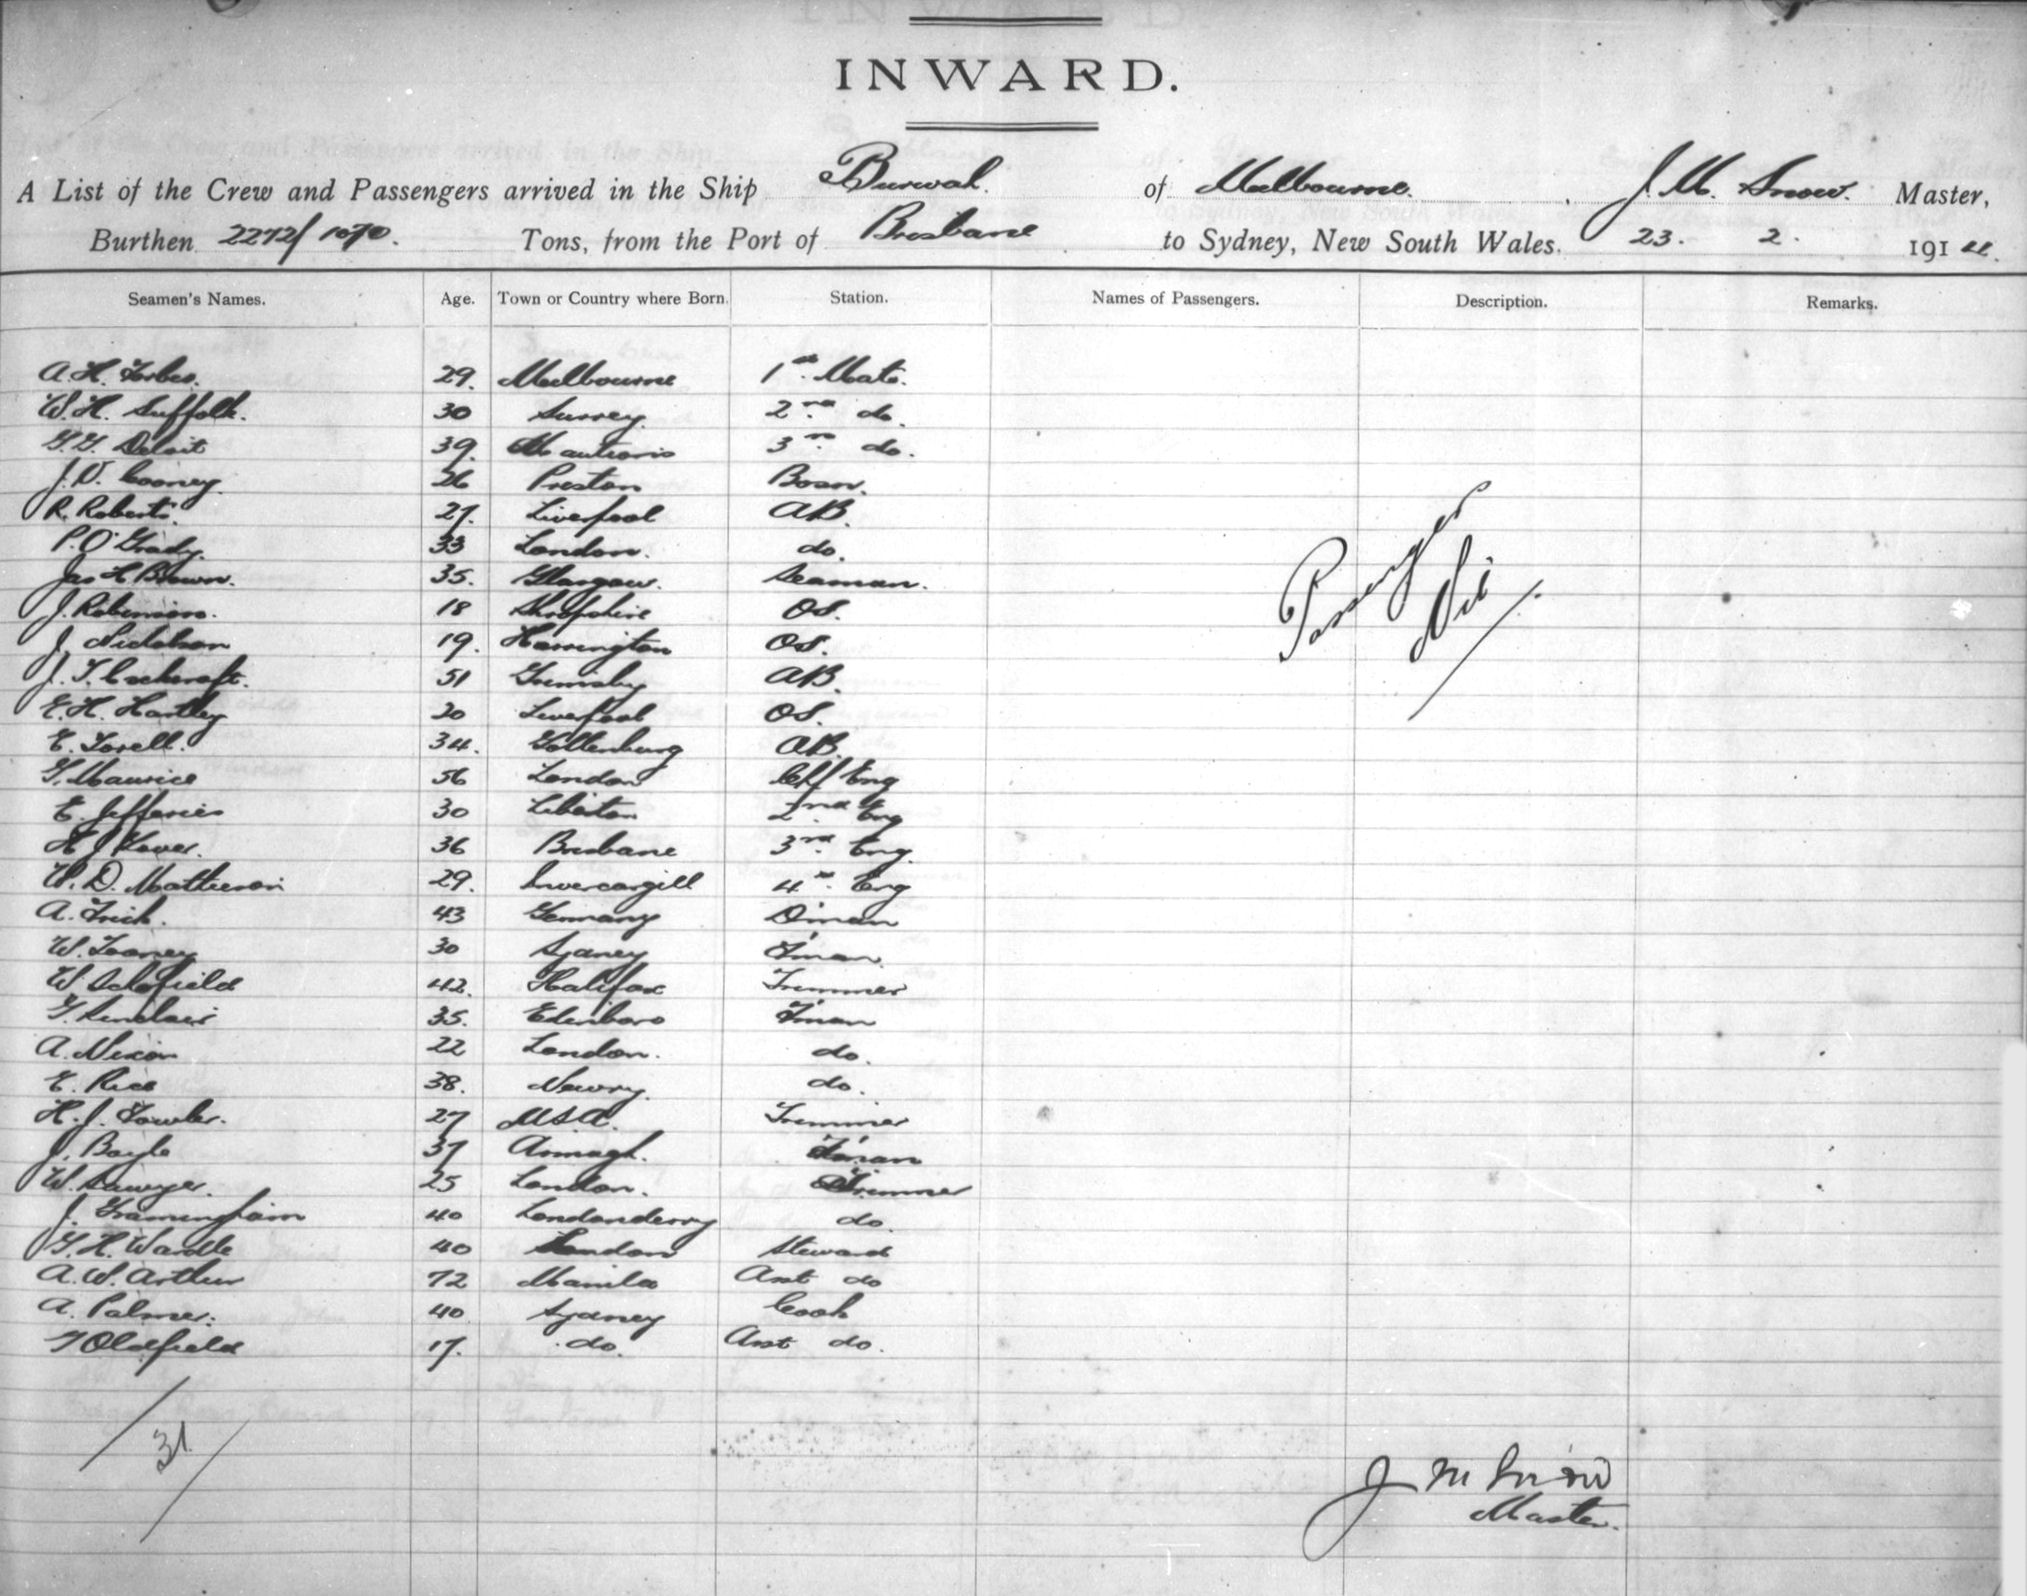 INWARD.
A List of the Crew and Passengers arrived in the Ship Burwah. of Melbourne. J. M. Snow. Master,
Burthen 2272/1070. Tons, from the Port of Brisbane to Sydney, New South Wales. 23. 2. 1914.
Seamen's Names. Age. Town or Country where Born. Station. Names of Passengers. Description. Remarks.
A. H. Forbes. 29. Melbourne 1st Mate.
W. H. Suffolk. 30 Surrey. 2nd do.
39. 3rd do.
J. D. Cooney. 26 Preston Bosn.
R. Roberts. 27. Liverpool AB.
P. O'Grady. 33 London. do.
Jas H Brown. 35. Glasgow. Seaman.
J. Robinson. 18 Shropshire OS.
J. Nicholson 19. Harrington OS.
J. T. 51 Grimsby AB.
E. H. Hartley 20 Liverpool OS.
E. Torell. 34. Gottenburg AB.
G. Maurice 56 London Chf Eng
E. Jefferies 30 2nd Eng
H J 36 Brisbane 3rd Eng.
W. D. Matheson 29. Invercargill 4th Eng
A. Frick. 43 Germany D'man
W. 30 Sydney F'man.
W Schofield 42. Halifax Trimmer
G. Sinclair 35. Edinboro F'man
A. Nixon 22 London. do.
E. Rice 38. Newry. do.
H. J. Fowler. 27 USA. Trimmer
J. Boyle 37 Armagh. F'man
W. Sawyer. 25 London. Trimmer
J. Framingham 40 Londonderry do.
G. H. Wardle 40 London Steward
A. W. Arthur 72 Manila Asst do
A. Palmer. 40. Sydney Cook
Oldfield 17. do. Asst do.
Passenger
Nil
31
J M Snow
Master.